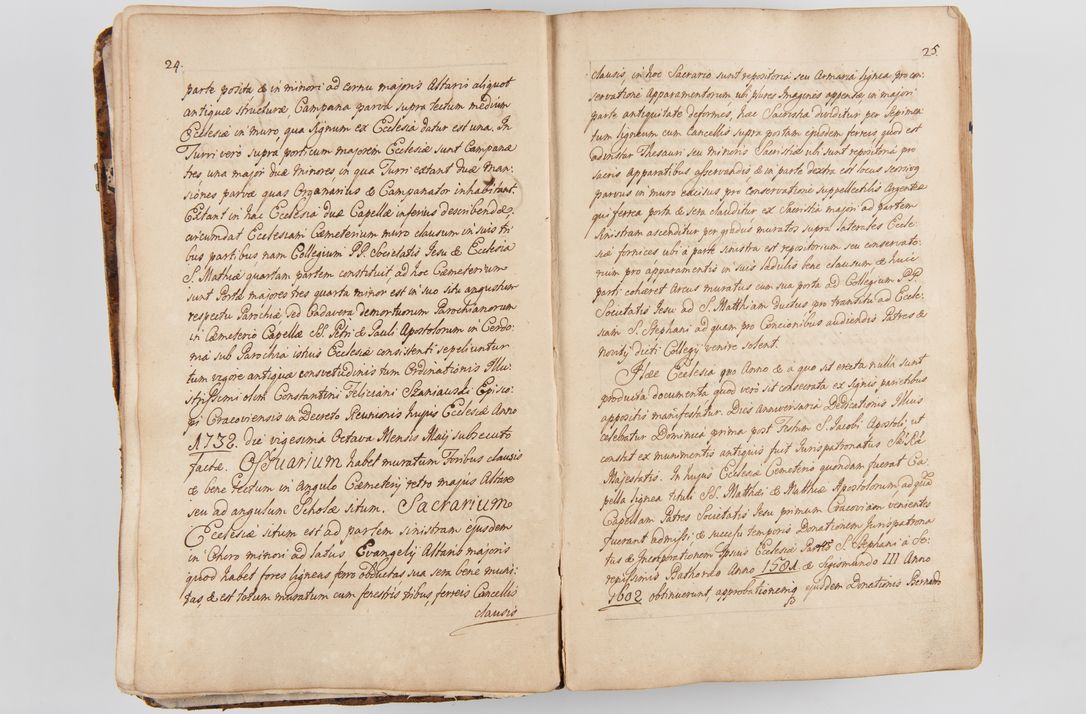 24.
parte posita & in minori ad cornu majoris Altari aliquot
antiquæ structuræ, Campana parva supra tectum medium
Ecclesiæ in muro qua signum ex Ecclesia datur est una. In
Turri verò supra porticum majorem Ecclesiæ sunt Campanæ
tres una major duæ minores in qua Turri extant duæ Man-
siones parvæ quas Organarius & Campanator inhabitant.
Extant in hac Ecclesia duæ Capellæ inferius describendæ,
circumdat Ecclesiam Cæmeterium muro clausum in suis tri
bus partibus nam Collegium PP. Societatis Jesu & Ecclesia
S. Mathiæ quartam partem constituit, ad hoc Cæmeterium
sunt Portæ majores tres quarta minor est in suo situ angustior
respectu Parochiæ sed Cadavera demortuorum Parochianorum
in Cæmeterio Capellæ SS. Petri & Pauli Apostolorum in Cerdo:
nia sub Parochia istius Ecclesiæ consistenti sepeliuntur
tum vigore antiquæ consvetudinis tum Ordinationis Illu:
strissimi olim Constantini Feliciani Szaniawski Episco:
pi Cracoviensis in Decreto Reunionis hujus Ecclesiæ Anno
1732. die vigesima Octava Mensis Maij subsecuto
factæ. Ossuarium habet muratum Foribus clausis
& bene tectum in Angulo Cæmeterij retro majus Altare
seu ad angulum Scholæ situm. Sacrarium
Ecclesiæ situm est ad partem sinistram ejusdem
in Choro minori ad latus Evangelij Altaris majoris
quod habet fores ligneas ferro obductas sua sera bene muni:
tas, & est totum muratum cum fenestris tribus, ferreis Cancellis
clausis
25.
clausis, in hoc Sacrario sunt repositoria seu Armaria lignea pro con:
servatione Apparamentorum ubi plures Imagines appensæ in majori
parte antiquitate deformes, hæc Sacristia dividitur per sepimen
tum ligneum cum Cancellis supra portam ejusdem ferreis quod est
ad instar Thesauri seu minoris Sacristiæ ubi sunt repositoria pro
sacris Apparatibus asservandis & in parte dextra est locus
parvus in muro excisus pro conservatione suppellectilis Argenteæ
qui ferrea porta & sera clauditur ex Sacristia majori ad partem
sinistram ascenditur per gradus muratos supra laterales Eccle:
siæ fornices ubi à parte sinistra est repositorium seu conservato:
rium pro apparamentis in suis ladulis bene clausum & huic
parti cohæret Arcus muratus cum sua porta ad Collegium PP.
Societatis Jesu ad S. Matthiam ductus pro transitu ad Eccle:
siam S. Stephani ad quam pro Concionibus audiendis Patres &
Novitij dicti Collegij venire solent.
Hæc Ecclesia quo Anno & a quo sit erecta nulla sunt
producta documenta quod verò sit consecrata ex signis parietibus
appositis manifestatur. Dies Anniversaria Dedicationis Illius
celebratur Dominica prima post Festum S. Jacobi Apostoli, ut
constat ex munimentis antiquis fuit Jurispatronatus S.R.
Majestatis. In hujus Ecclesiæ Cæmeterio quondam fuerat Ca:
pella lignea tituli SS. Matthæi & Mathiæ Apostolorum ad quam
Capellam Patres Societatis Jesu primum Cracoviam venientes
fuerant admissi & successu temporis Donationem Jurispatrona
tus & Incorporationem Ipsius Ecclesiæ S. Stephani à Se:
renissimis Bathoreo Anno 1581 & Sigismundo III Anno
1602 obtinuerunt, approbationemq ejusdem Donationis Bernardo